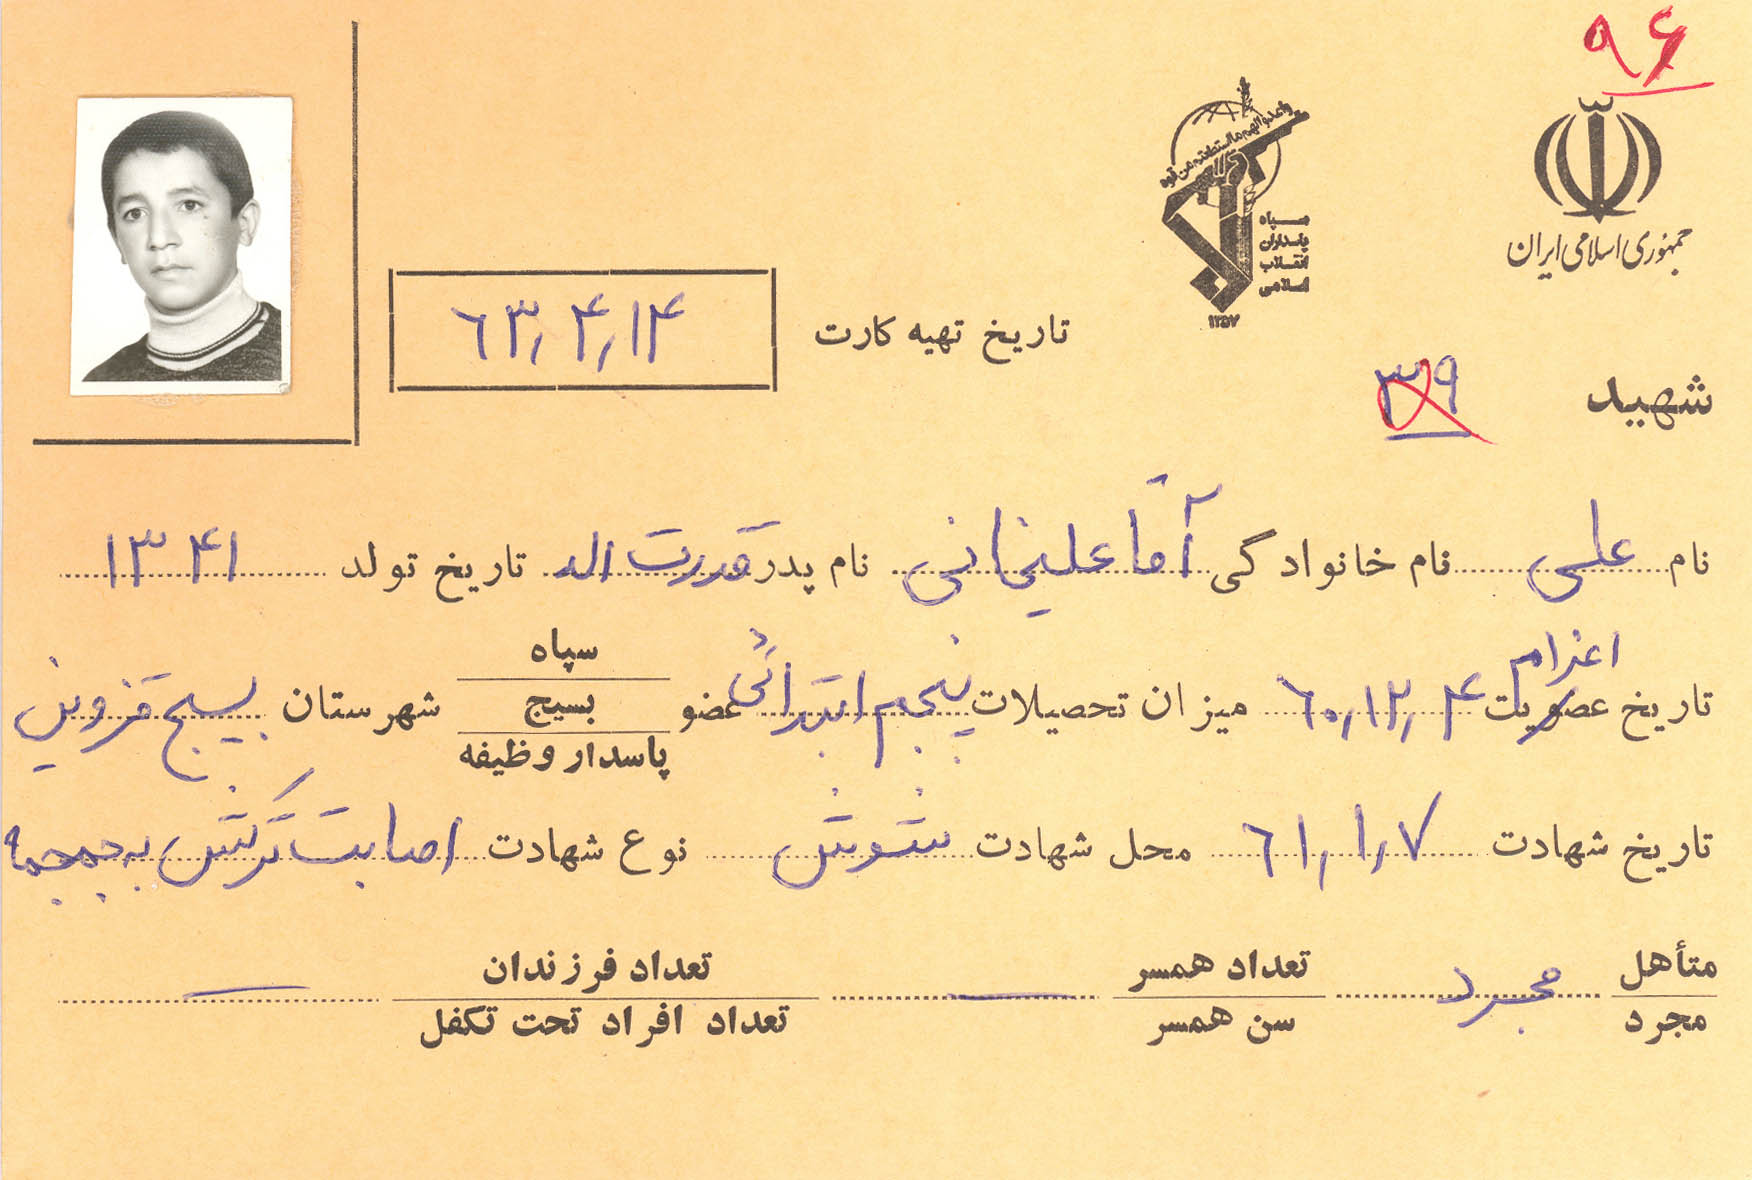 ۹۶
جمهوری اسلامی ایران
واعدوا لهم ما استطعتم من قوة
سپاه
پاسداران
انقلاب
اسلامی
۱۳۵۷
تاریخ تهیه کارت ۶۳/۴/۱۴
شهید ۳۹
نام علی نام خانوادگی آقاعلیخانی نام پدر قدرت اله تاریخ تولد ۱۳۴۱
اعزام
تاریخ عضویت ۶۰/۱۲/۴ میزان تحصیلات پنجم ابتدائی عضو سپاه بسیج پاسدار وظیفه شهرستان بسیج قزوین
تاریخ شهادت ۶۱/۱/۷ محل شهادت شوش نوع شهادت اصابت ترکش به جمجمه
متأهل مجرد مجرد تعداد همسر سن همسر — تعداد فرزندان تعداد افراد تحت تکفل —